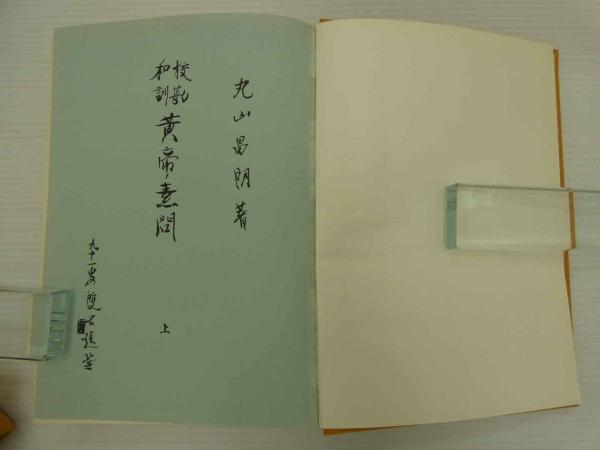 丸山昌朗著
校勘
和訓
黄帝素問
上
九十一叟雙石題簽